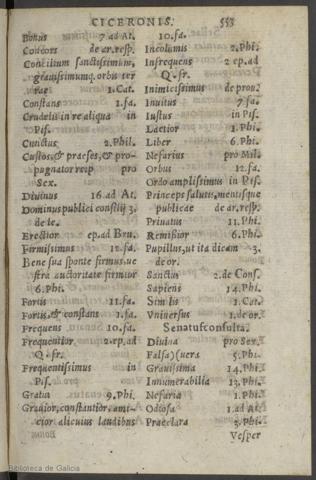 CICERONIS. 553
Bonus 7 ad At.
Concors de ar.resp.
Concilium sanctissimum,
grauissimumq. orbis ter
rae 1.Cat.
Constans 1.fa.
Crudelis in re aliqua in
Pis.
Cunctus 2.Phil.
Custos, & praeses, & pro-
pugnator reip pro
Sex.
Diuinus 16.ad At.
Dominus publici consilij 3.
de le.
Erectior ep.ad Bru.
Firmissimus 12.fa.
Bene sua sponte firmus, ue
stra auctoritate firmior
6.Phi.
Fortis 11.fa.
Fortis, & constans 1.fa.
Frequens 10.fa.
Frequentior 2.ep.ad
Q.fr.
Frequentissimus in
Pis.
Gratus 9.Phi.
Grauior, constantior, ami-
cior alicuius laudibus
10.fa.
Incolumis 2.Phi.
Infrequens 2 ep.ad
Q.fr.
Inimicissimus de prou.
Inuitus 7.fa.
Iustus in Pis.
Laetior 1.Phi.
Liber 6.Phi.
Nefarius pro Mil.
Orbus 12.fa.
Ordo amplissimus in Pis.
Princeps salutis, mentisque
publicae de ar.resp.
Priuatus 11.Phi.
Remissior 6.Phi.
Pupillus, ut ita dicam 3.
de or.
Sanctus 2.de Cons.
Sapiens 14.Phi.
Similis 1.Cat.
Vniuersus 1.de or.
Senatusconsulta.
Diuina pro Sex.
Falsa)(uera 5.Phi.
Grauissima 14.Phi.
Innumerabilia 13.Phi.
Nefaria 1.Phi.
Odiosa 1.ad At.
Praeclara 3.Phi.
Vesper
Biblioteca de Galicia